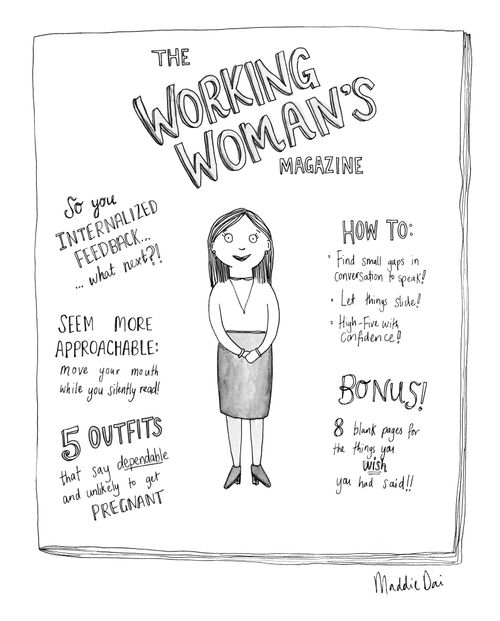 THE
WORKING
WOMAN'S
MAGAZINE
So you
INTERNALIZED
FEEDBACK...
... what next?!
SEEM MORE
APPROACHABLE:
move your mouth
while you silently read!
5 OUTFITS
that say dependable
and unlikely to get
PREGNANT
HOW TO:
• Find small gaps in
conversation to speak!
• Let things slide!
• High-Five with
Confidence!
BONUS!
8 blank pages for
the things you
wish
you had said!!
Maddie Dai